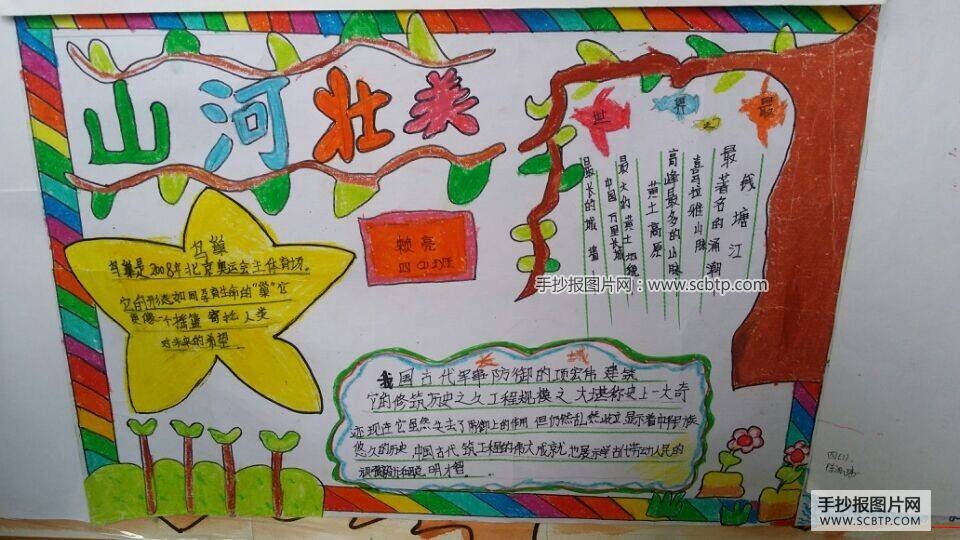 山河壮美
世界之最
钱塘江
最著名的涌潮
喜马拉雅山脉
高峰最多的山脉
黄土高原
最大的黄土
中国万里长城
最长的城墙
鸟巢
鸟巢是2008年北京奥运会主体育场。
它的形态如同孕育生命的“巢”它
更像一个摇篮寄托人类
对未来的希望
赖亮
四(1)班
手抄报图片网:www.scbtp.com
长城
我国古代军事防御的项宏伟建筑
它的修筑历史之久工程规模之大堪称史上一大奇
迹现在它虽然失去了防御上的作用但仍然乱然屹立显示着中华民族
悠久的历史中国古代筑工程的伟大成就尤也展示学古代劳动人民的
聪明才智
四(1)
手抄报图片网
WWW.SCBTP.COM